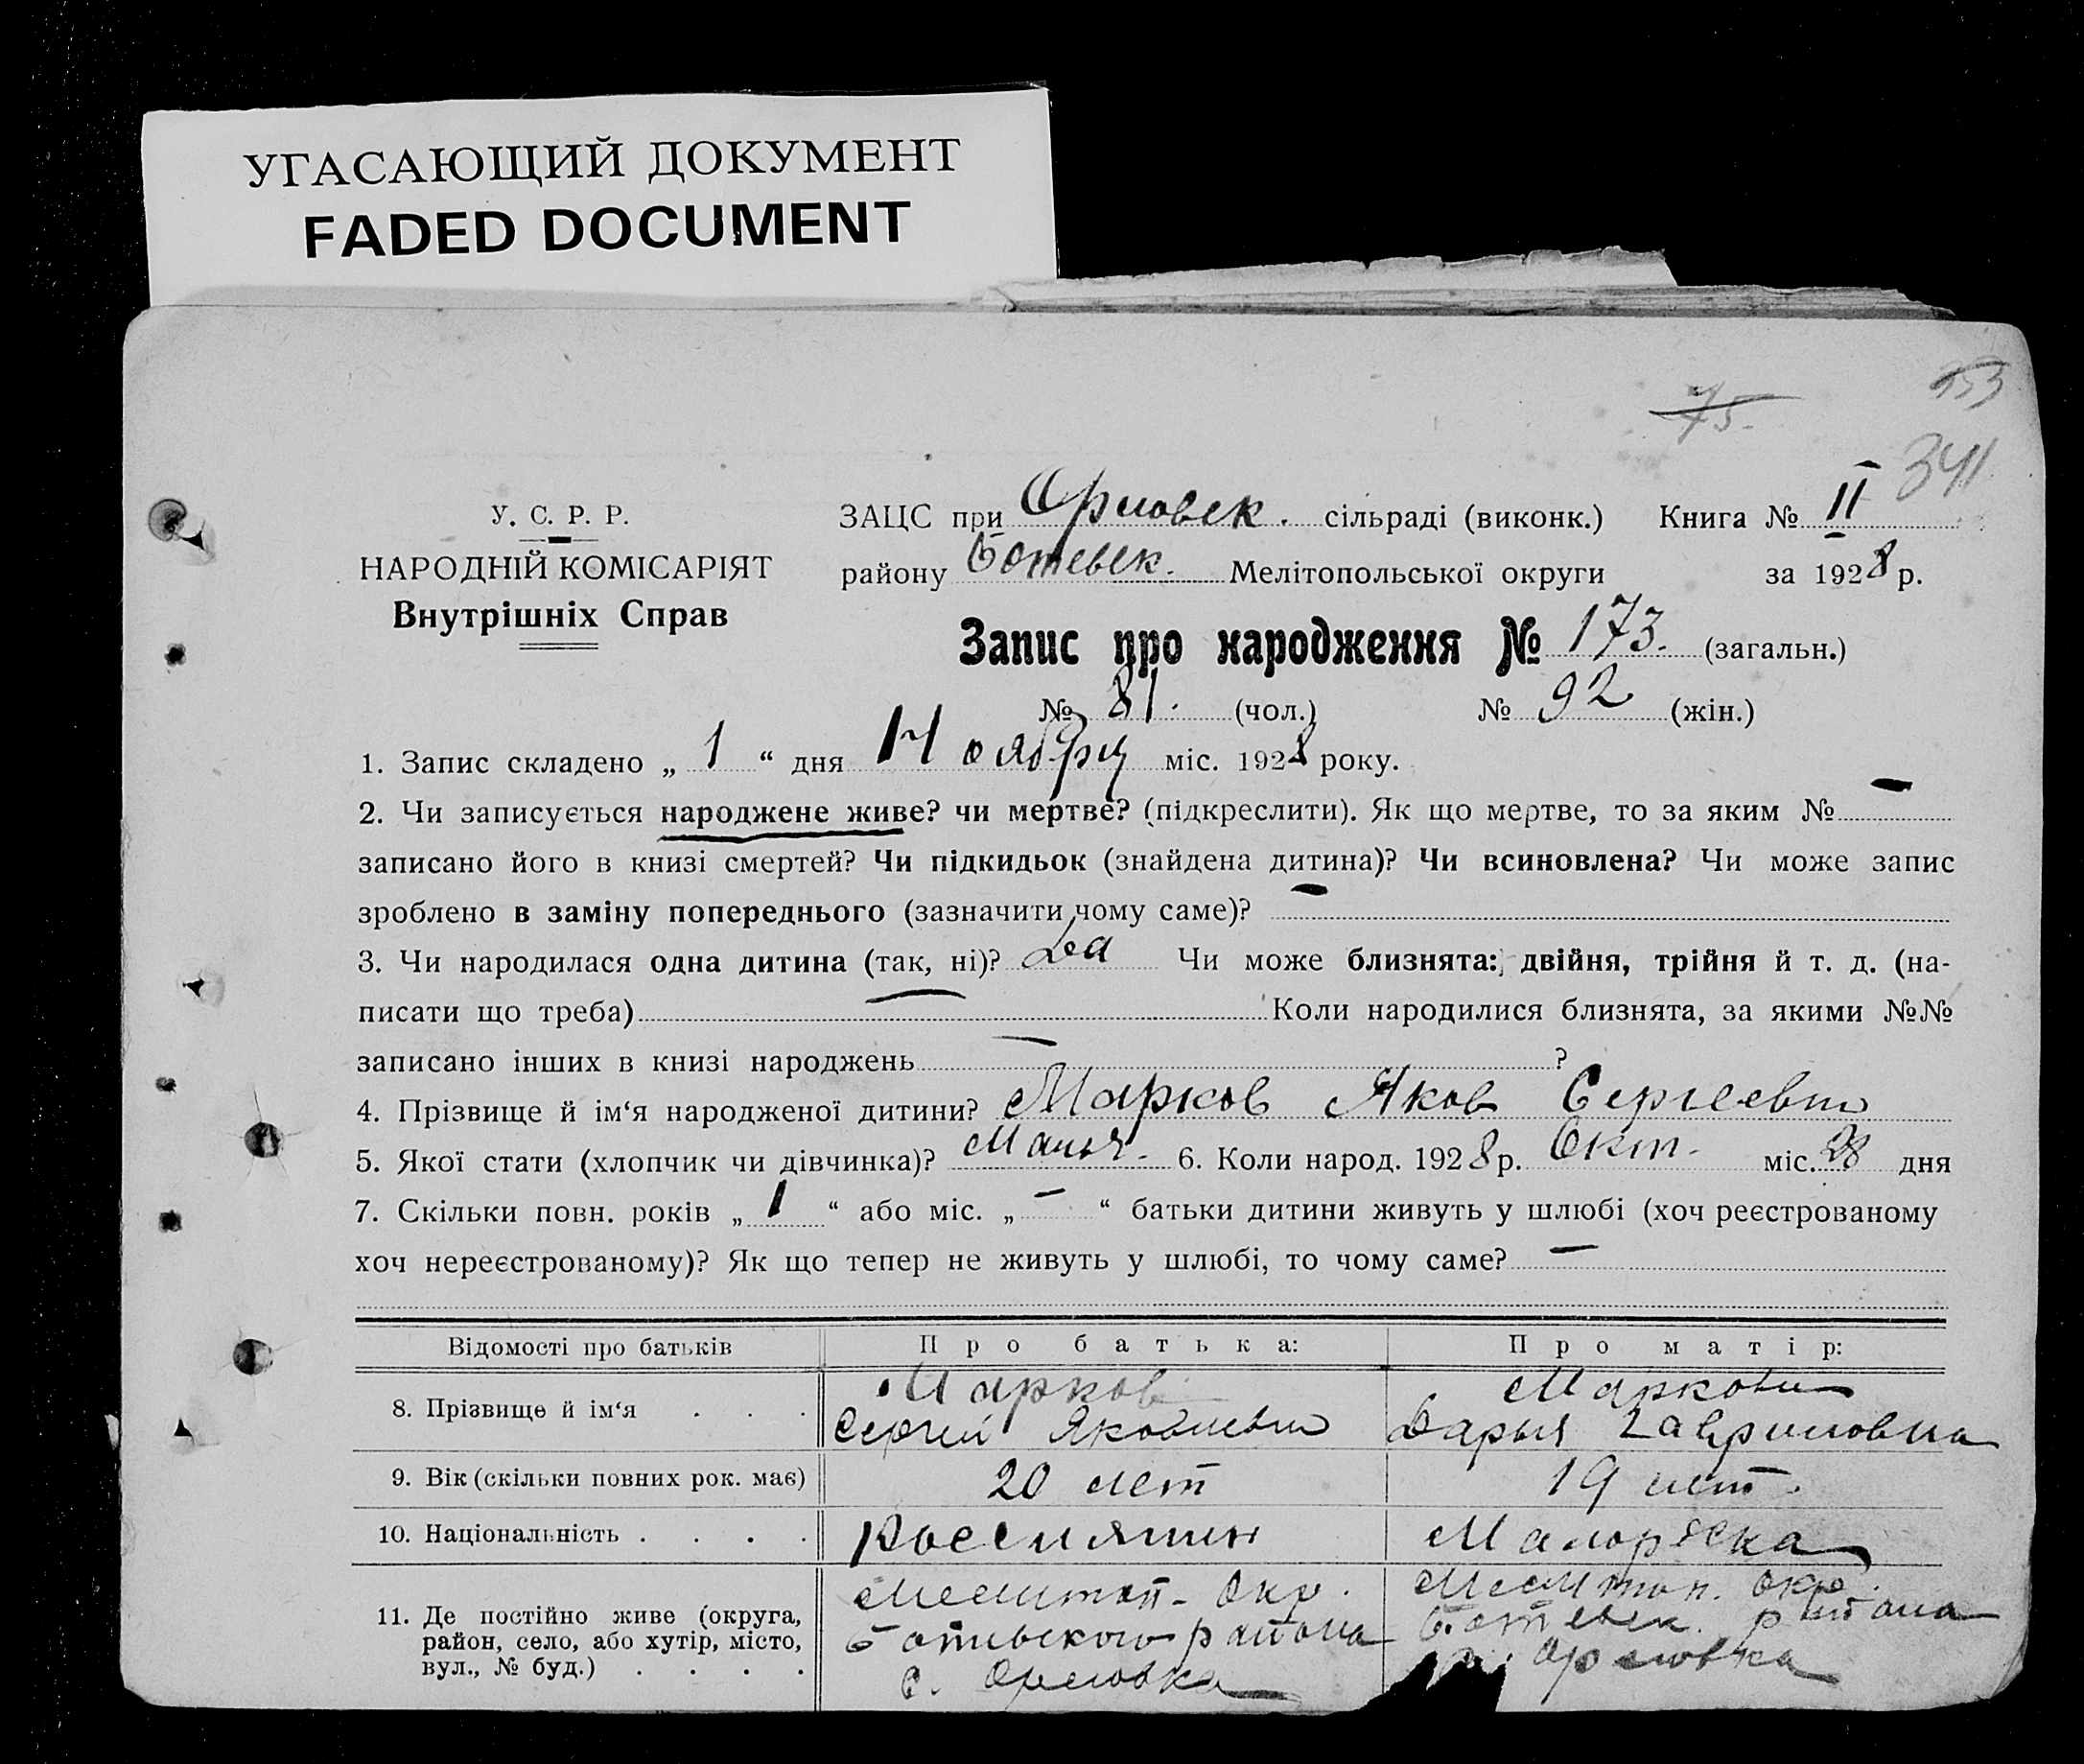 УГАСАЮЩИЙ ДОКУМЕНТ
FADED DOCUMENT
75.
341
У. С. Р. Р.
НАРОДНІЙ КОМІСАРІЯТ
Внутрішніх Справ
ЗАЦС при Орловск. сільраді (виконк.) Книга № II
району Ботевск. Мелітопольської округи за 1928 р.
Запис про народження № 173. (загальн.)
№ 81. (чол.) № 92 (жін.)
1. Запис складено „ 1 “ дня Ноября міс. 1928 року.
2. Чи записується народжене живе? чи мертве? (підкреслити). Як що мертве, то за яким № —
записано його в книзі смертей? Чи підкидьок (знайдена дитина)? Чи всиновлена? Чи може запис
зроблено в заміну попереднього (зазначити чому саме)? —
3. Чи народилася одна дитина (так, ні)? Да Чи може близнята: двійня, трійня й т. д. (на-
писати що треба) — Коли народилися близнята, за якими №№
записано інших в книзі народжень — ?
4. Прізвище й ім‘я народженої дитини? Марков Яков Сергеевич
5. Якої стати (хлопчик чи дівчинка)? Мальч. 6. Коли народ. 1928 р. Окт. міс. 28 дня
7. Скільки повн. років „ 1 “ або міс. „ — “ батьки дитини живуть у шлюбі (хоч реєстрованому
хоч нереєстрованому)? Як що тепер не живуть у шлюбі, то чому саме? —
Відомості про батьків Про батька: Про матір:
8. Прізвище й ім‘я . . . Марков Маркова
Сергей Яковлевич Дарья Гавриловна
9. Вік (скільки повних рок. має) 20 лет 19 лет.
10. Національність . . . . Россиянин Малорвска
11. Де постійно живе (округа, Мелитоп. Окр. Мелитоп. Окр.
район, село, або хутір, місто, Ботьевского района Ботевск. района
вул., № буд.) . . . . с. Орловка Орловка